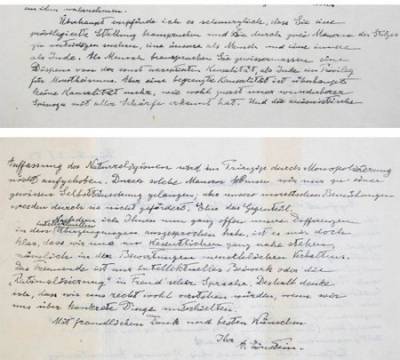 Überhaupt empfinde ich es schmerzlich, dass Sie eine
privilegierte Stellung beanspruchen und sie durch zwei Mauern des Stolzes
zu verteidigen suchen, eine äussere als Mensch und eine innere
als Jude. Als Mensch beanspruchen Sie gewissermassen einen
Dispens von der sonst acceptierten Kausalität, als Jude ein Privileg
für Monotheismus. Aber eine begrenzte Kausalität ist überhaupt
keine Kausalität mehr, wie wohl zuerst unser wunderbarer
Spinoza mit aller Schärfe erkannt hat. Und die animistische
Auffassung der Naturreligionen wird im Prinzip durch Monopolisierung
nicht aufgehoben. Durch solche Mauern können wir nur zu einer
gewissen Selbsttäuschung gelangen; aber unsere moralischen Bemühungen
werden durch sie nicht gefördert. Eher das Gegenteil.
Nachdem ich Ihnen nun ganz offen unsere Differenzen
in den intellektuellen Überzeugungen ausgesprochen habe, ist es mir doch
klar, dass wir uns im Wesentlichen ganz nahe stehen,
nämlich in den Bewertungen menschlichen Verhaltens.
Das Trennende ist nur intellektuelles Beiwerk oder die
"Rationalisierung" in Freud'scher Sprache. Deshalb denke
ich, dass wir uns recht wohl verstehen würden, wenn wir
uns über konkrete Dinge unterhielten.
Mit freundlichem Dank und besten Wünschen
Ihr
A. Einstein.